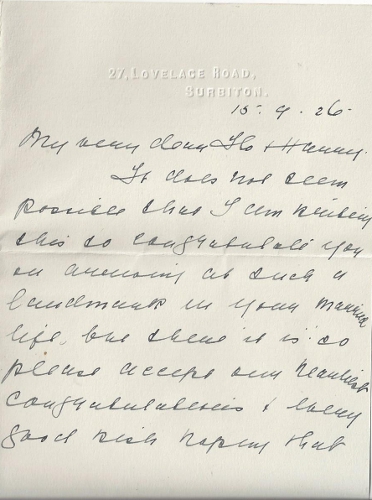 27, LOVELACE ROAD,
SURBITON.
15. 9. 26.
My very dear Flo & Harry.
It does not seem
possible that I am writing
this to congratulate you
on arriving at such a
landmark in your married
life, but there it is so
please accept our heartiest
congratulations & every
good wish hoping that